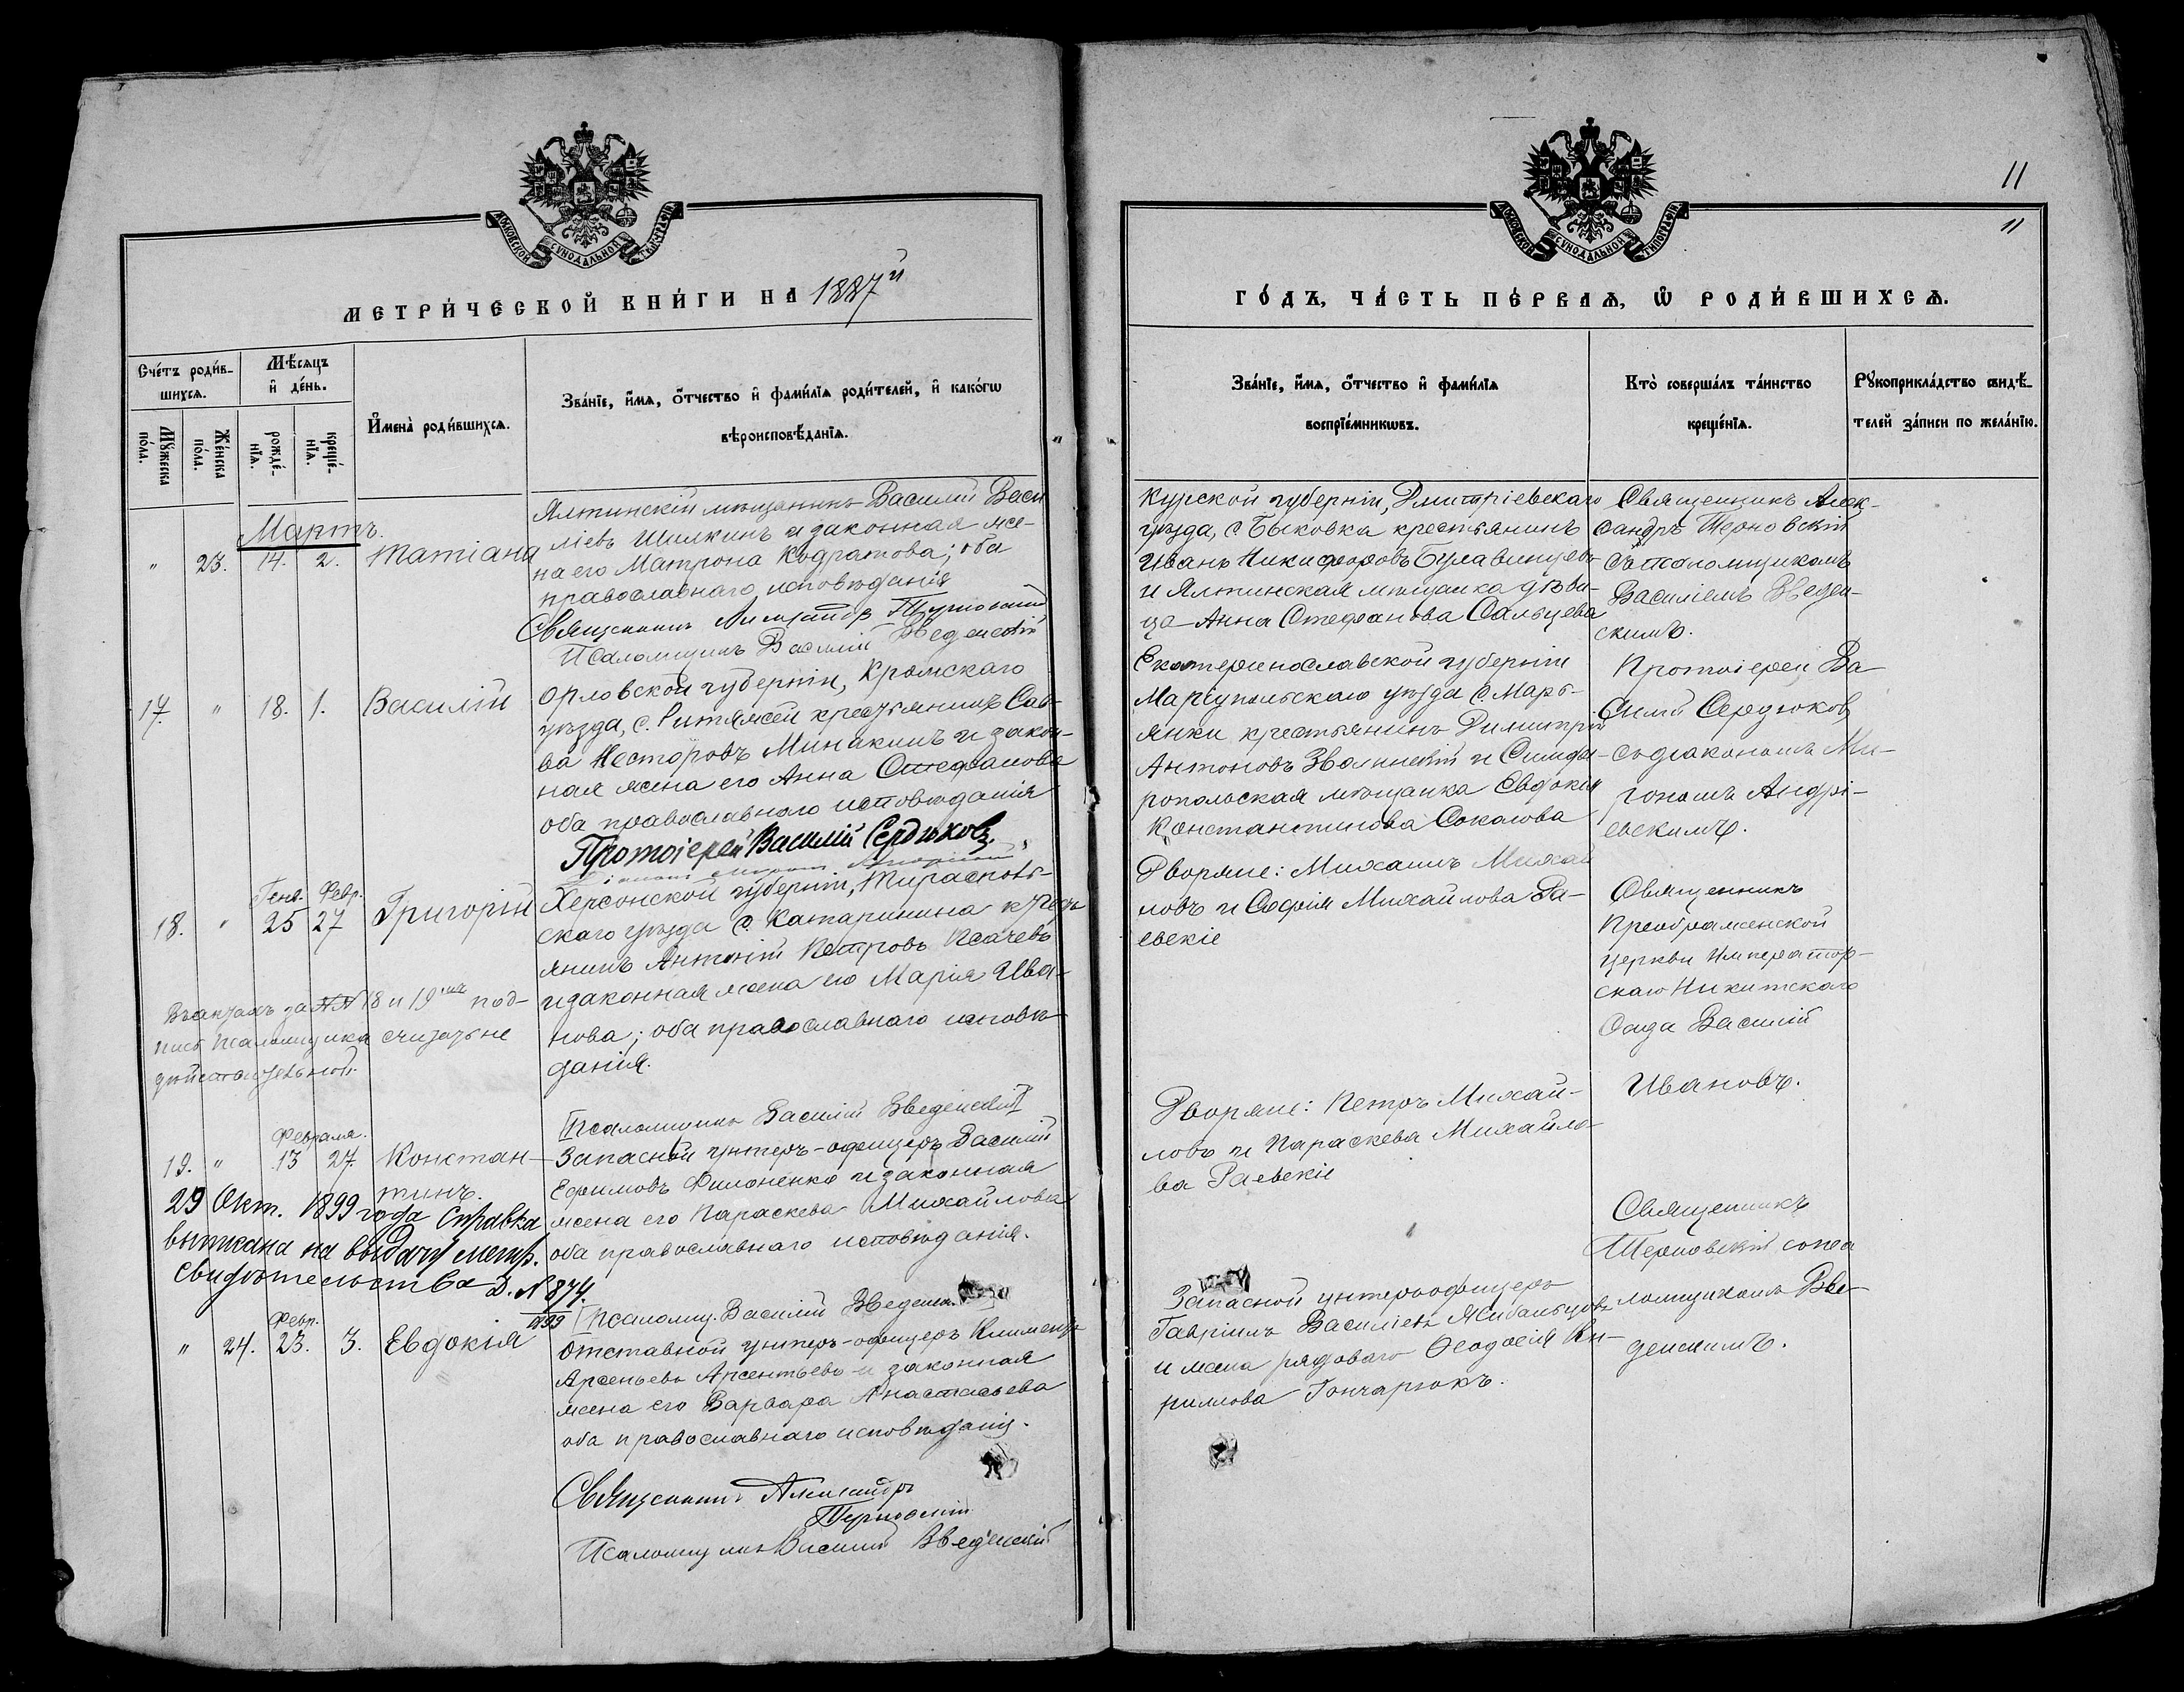 МОСКОВСКОЙ СѴНОДАЛЬНОЙ ТИПОГРАФІИ
МЕТРИ́ЧЕСКОЙ КНИ́ГИ НА 1887й
Сче́тъ роди́в-
шихсѧ.
Мѣ́сяцъ
и҆ де́нь.
Мꙋ́жеска
по́ла.
Же́нска
по́ла.
рожде́-
нїѧ.
креще́-
нїѧ.
И҆мена̀ роди́вшихсѧ.
Зва́нїе, и҆́мѧ, о҆́тчество и҆ фами́лїѧ роди́телей, и҆ како́гѡ
вѣроисповѣ́данїѧ.
Мартъ.
" 23. 14. 2. Татіана
Ялтинскій мѣщанинъ Василій Васи
ліевъ Шилкинъ и законная же-
на его Матрона Кодратова; оба
православнаго исповѣданія
Священникъ Александръ Терновскій
Псаломщикъ Василій Введенскій
17. " 18. 1. Василій
Орловской губерніи, Кромскаго
уѣзда, с. крестьянинъ Сав-
ва Несторовъ Минакинъ и закон-
ная жена его Анна Стефанова
оба православнаго исповѣданія
Протоіерей Василій Сердюковъ
Генв. Февр.
18. " 25 27 Григорій
Херсонской губерніи, Тирасполь-
скаго уѣзда с. Катаринина кресть
янинъ Антоній Петровъ Псачевъ
и законная жена его Марія Ива-
нова; оба православнаго исповѣ-
данія.
Въ актахъ за №№ 18 и 19мъ под-
пись псаломщика считать не
дѣйствительной.
Псаломщикъ Василій Введенскій
Февраля.
19. " 13 27. Констан-
тинъ.
Запасной унтеръ-офицеръ Василій
Ефимовъ Филоненко и законная
жена его Параскева Михайлова
оба православнаго исповѣданія.
29 Окт. 1899 года справка
выписана на выдачу метр.
свидѣтельства Д. № 874.
1899
Псаломщ. Василій Введенск.
Февр.
" 24. 23. 3. Евдокія
Отставной унтеръ-офицеръ Климентъ
Арсеньевъ Арсентьевъ и законная
жена его Варвара Анастасьева
оба православнаго исповѣданія.
Священникъ Александръ
Терновскій
Псаломщикъ Василій Введенскій
11
11
МОСКОВСКОЙ СѴНОДАЛЬНОЙ ТИПОГРАФІИ
ГО́ДЪ, ЧА́СТЬ ПЕ́РВАѦ, Ѡ҆ РОДИ́ВШИХСѦ.
Зва́нїе, и҆́мѧ, о҆́тчество и҆ фами́лїѧ
воспрїе́мникѡвъ.
Кто̀ соверша́лъ та́инство
креще́нїѧ.
Рꙋкоприкла́дство свидѣ́-
телей за́писи по жела́нїю.
Курской губерніи, Дмитріевскаго
уѣзда, с. Быковка крестьянинъ
Иванъ Никифоровъ Булавинцевъ
и Ялтинская мѣщанка дѣви-
ца Анна Стефанова Сальцева
Священникъ Алек-
сандръ Терновскій
съ псаломщикомъ
Василіемъ Введен-
скимъ.
Екатеринославской губерніи
Маріупольскаго уѣзда с. Марь-
янки крестьянинъ Димитрій
Антоновъ Звалинскій и Симфе-
ропольская мѣщанка Евдокія
Константинова Соколова
Протоіерей Ва-
силій Сердюковъ
съ діакономъ Ми-
рономъ Андрі-
евскимъ.
Дворяне: Михаилъ Михай
ловъ и Софія Михайлова Ра-
евскіе
Священникъ
Преображенской
церкви Император-
скаго Никитскаго
Сада Василій
Ивановъ.
Дворяне: Петръ Михай-
ловъ и Параскева Михайло-
ва Раевскіе
Священникъ
Терновскій съ пса
ломщикомъ Вве-
денскимъ.
Запасной унтеръ-офицеръ
Гавріилъ Василіевъ
и жена рядоваго Ѳеодосія Ки-
риллова Гончарюкъ.